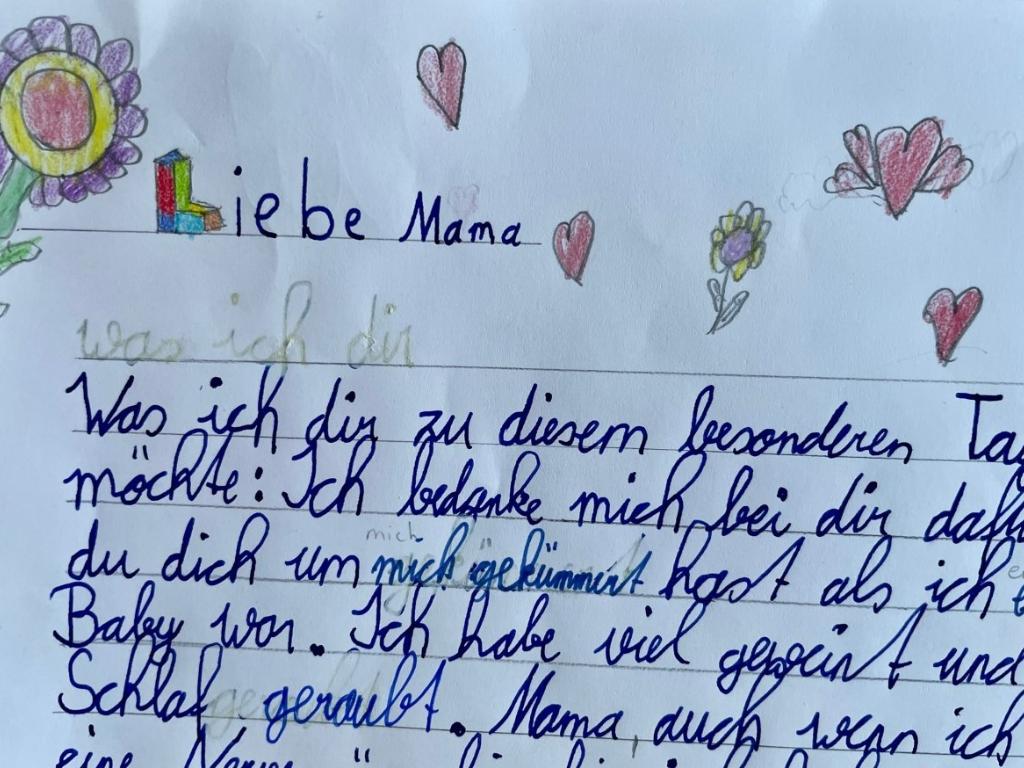 Liebe Mama
was ich dir
Was ich dir zu diesem besonderen Ta
möchte: Ich bedanke mich bei dir dafü
mich
du dich um mich gekümmert hast als ich
Baby war. Ich habe viel geweint und
Schlaf geraubt. Mama, auch wenn ich
eine